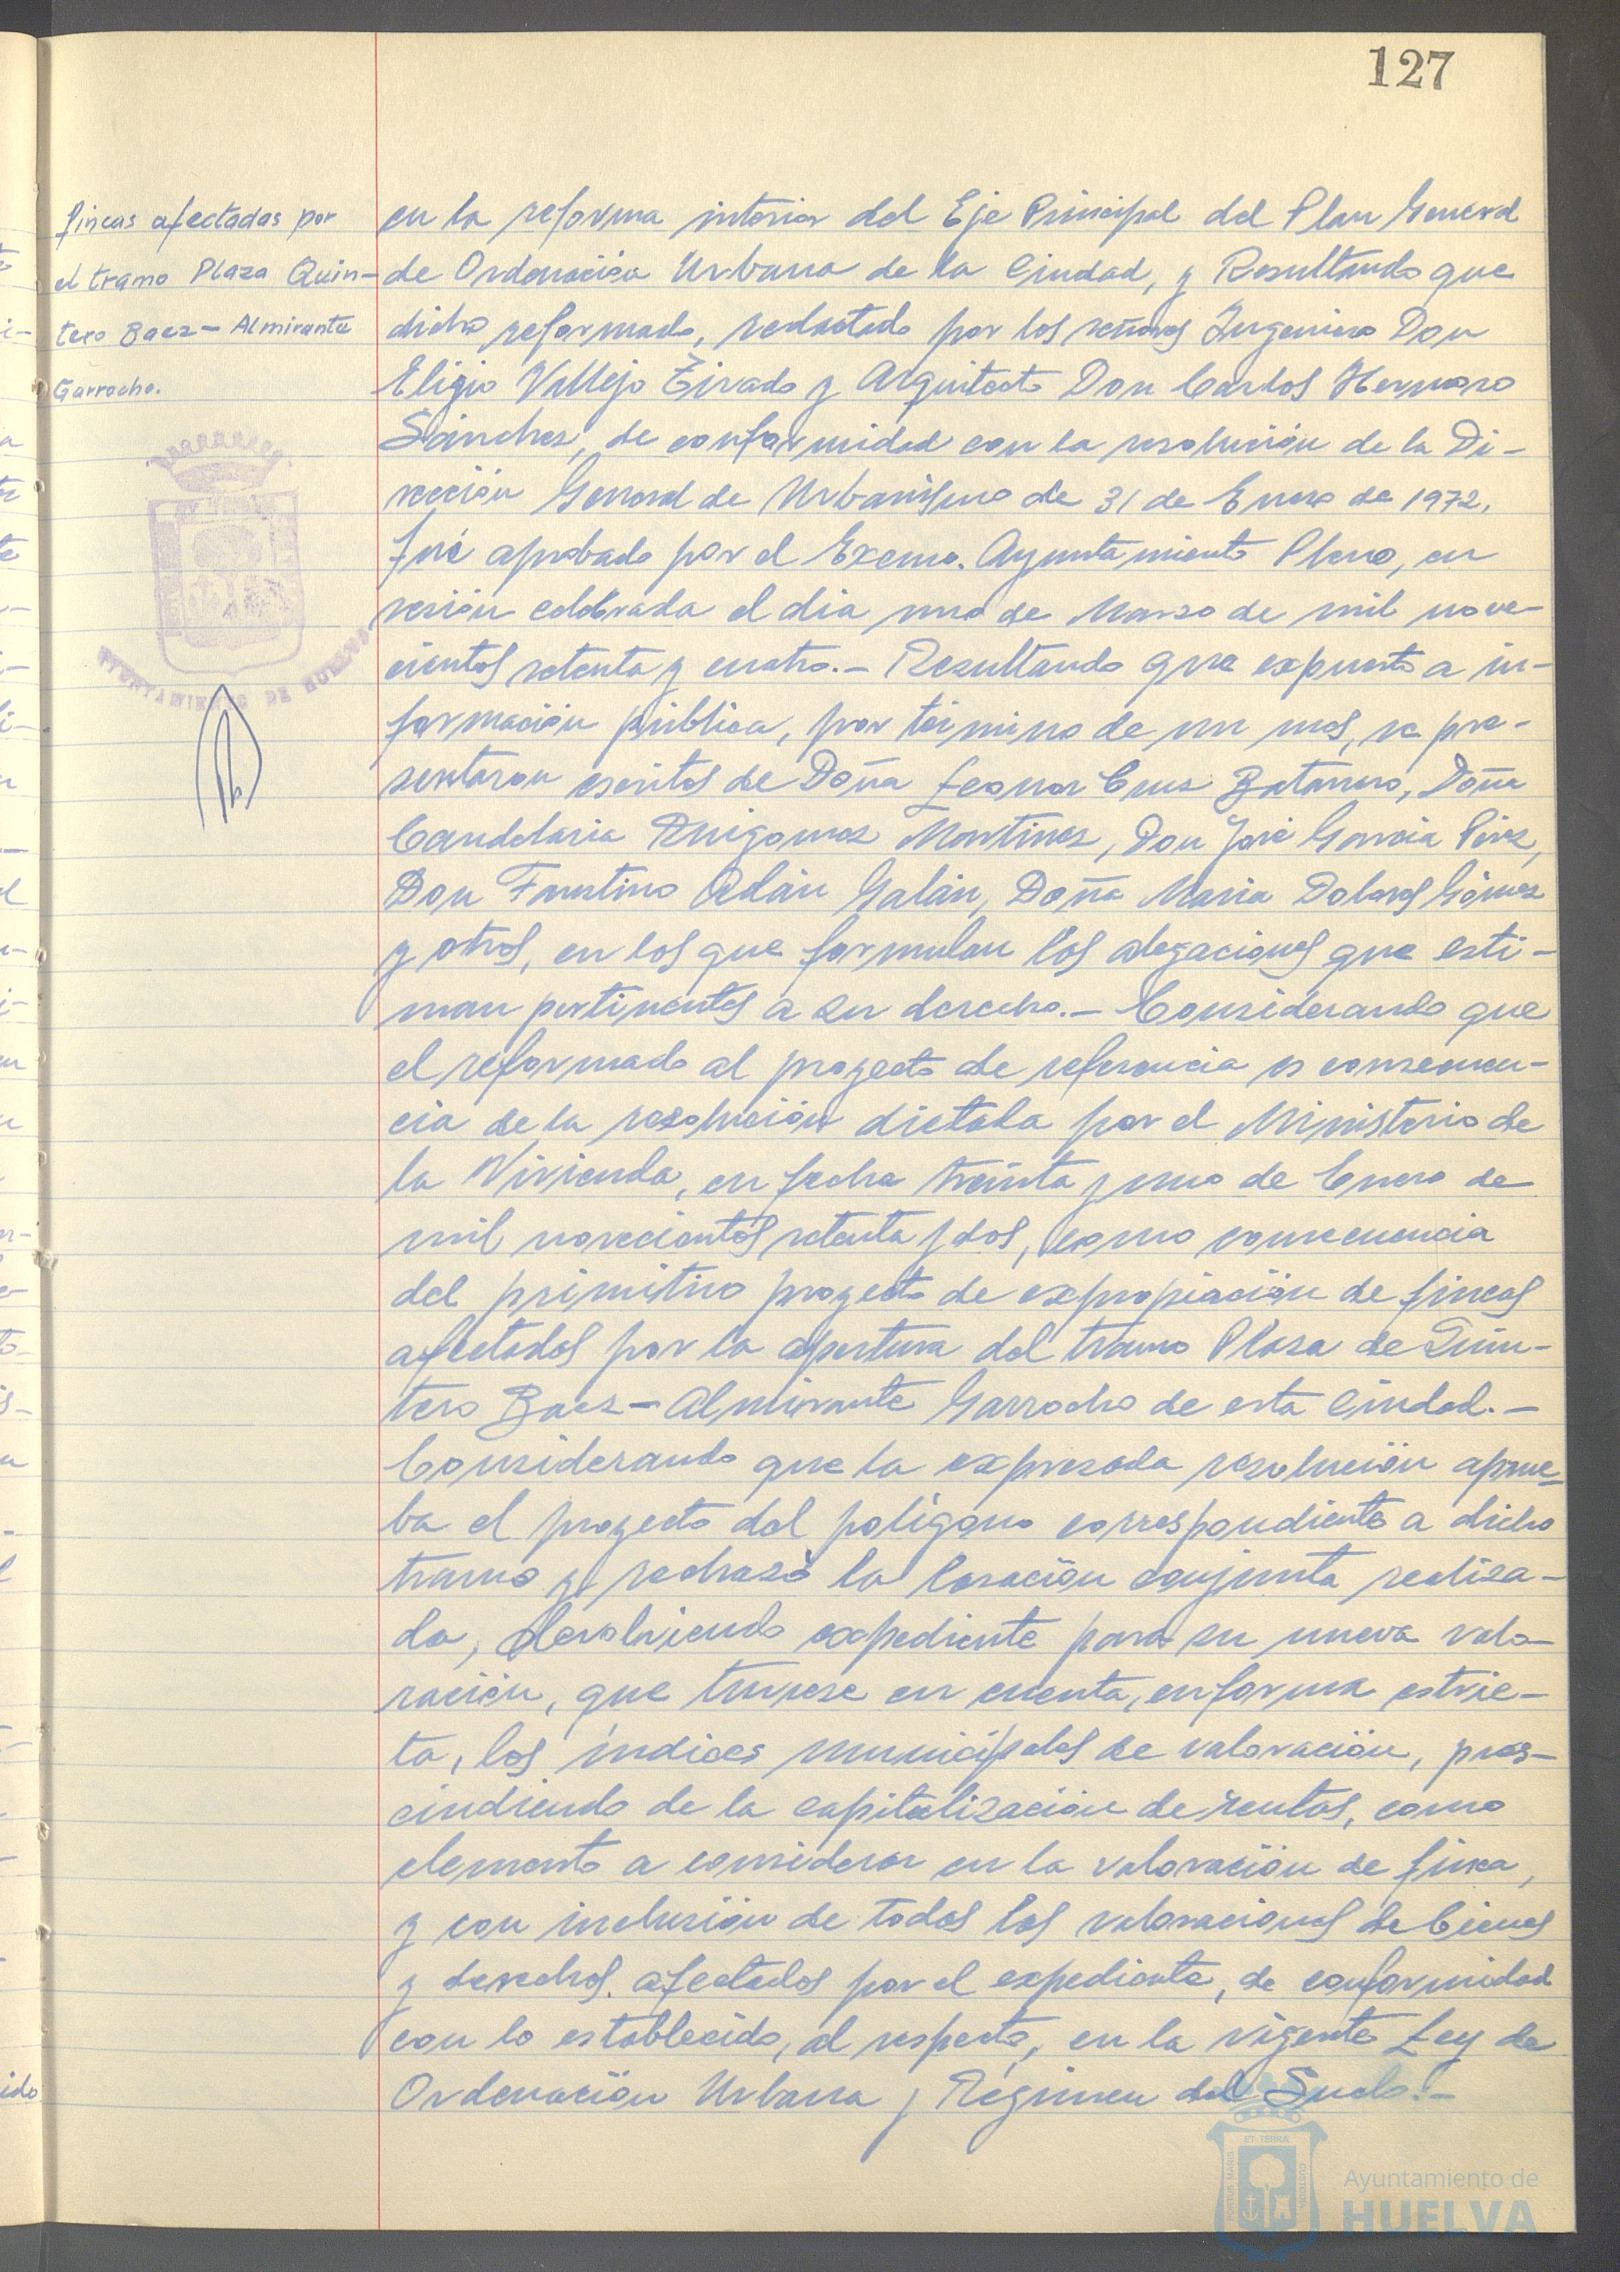 127
fincas afectadas por
el tramo Plaza Quin-
tero Baez - Almirante
Garrocho.
AYUNTAMIENTO DE HUELVA
en la reforma interior del Eje Principal del Plan General
de Ordenación Urbana de la Ciudad, y Resultando que
dicho reformado, redactado por los señores Ingeniero Don
Eligio Vallejo Tirado y Arquitecto Don Carlos Hermoso
Sánchez, de conformidad con la resolución de la Di-
rección General de Urbanismo de 31 de Enero de 1972,
fué aprobado por el Excmo. Ayuntamiento Pleno, en
sesión celebrada el dia uno de Marzo de mil nove-
cientos setenta y cuatro.- Resultando que expuesto a in-
formación pública, por término de un mes, se pre-
sentaron escritos de Doña Leonor Cruz Batanero, Doña
Candelaria Martinez, Don José Garcia Pérez,
Don Faustino Adán Galán, Doña Maria Dolores Gómez
y otros, en los que formulan las alegaciones que esti-
man pertinentes a su derecho.- Considerando que
el reformado al proyecto de referencia es consecuen-
cia de la resolución dictada por el Ministerio de
la Vivienda, en fecha treinta y uno de Enero de
mil novecientos setenta y dos, como consecuencia
del primitivo proyecto de expropiación de fincas
afectadas por la apertura del tramo Plaza de Quin-
tero Baez - Almirante Garrocho de esta Ciudad.-
Considerando que la expresada resolución aprue-
ba el proyecto del polígono correspondiente a dicho
tramo y rechazó la tasación conjunta realiza-
da, devolviendo expediente para su nueva valo-
ración, que tuviese en cuenta, en forma estric-
ta, los índices municipales de valoración, pres-
cindiendo de la capitalización de rentas, como
elemento a considerar en la valoración de finca,
y con inclusión de todas las valoraciones de bienes
y derechos afectados por el expediente, de conformidad
con lo establecido, al respecto, en la vigente Ley de
Ordenación Urbana y Régimen del Suelo.-
ET TERRA
PORTUS MARIS
CUSTODIA
Ayuntamiento de
HUELVA